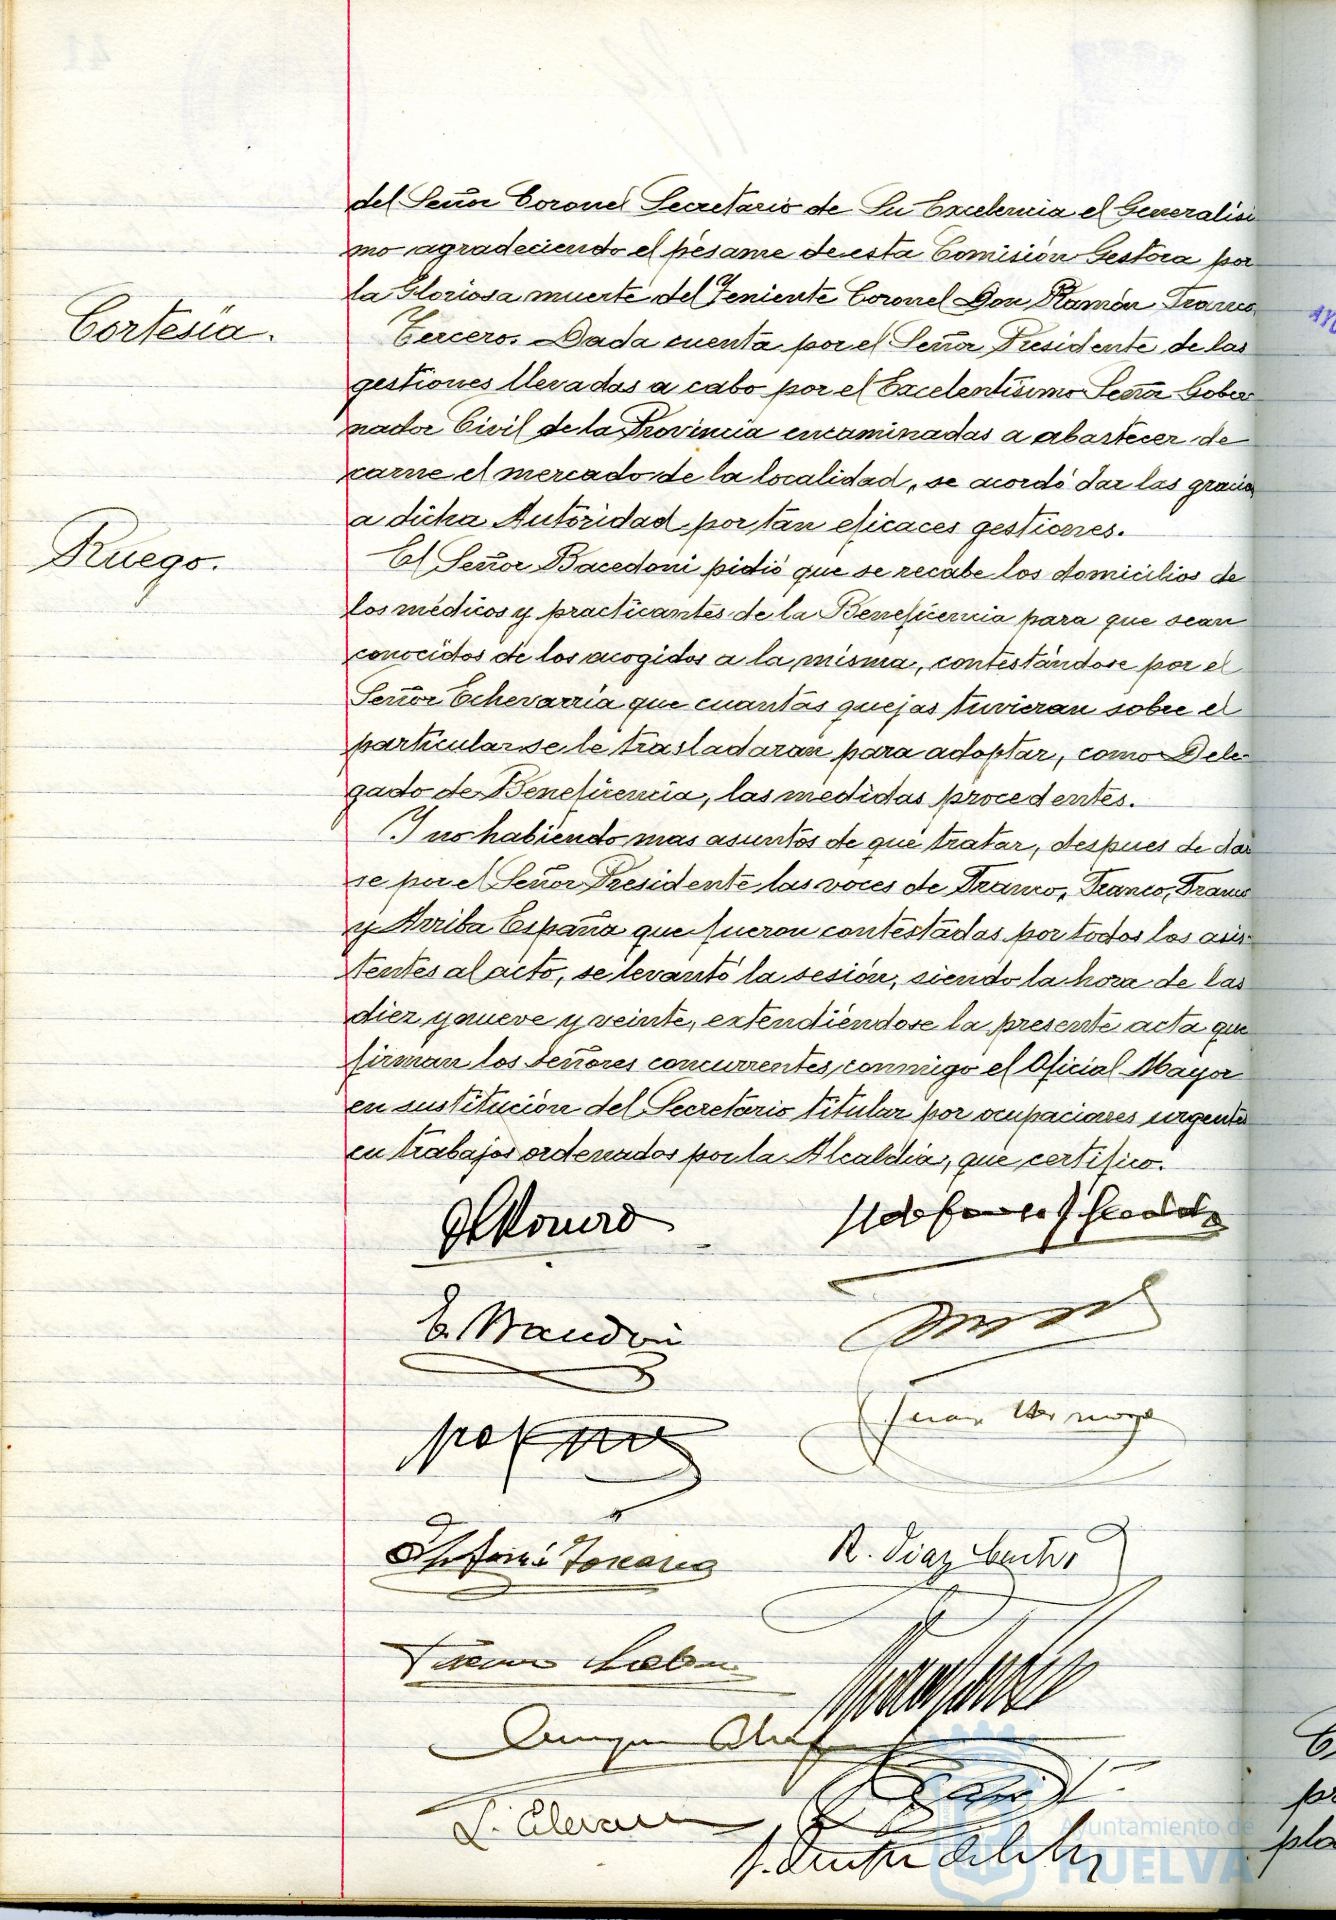 del Señor Coronel Secretario de Su Excelencia el Generalísi
mo agradeciendo el pésame de esta Comisión Gestora por
la Gloriosa muerte del Teniente Coronel Don Ramón Franco.
Cortesía.
Tercero. Dada cuenta por el Señor Presidente de las
gestiones llevadas a cabo por el Excelentísimo Señor Gober
nador Civil de la Provincia encaminadas a abastecer de
carne el mercado de la localidad, se acordó dar las gracias
a dicha Autoridad por tan eficaces gestiones.
Ruego.
El Señor Bacedoni pidió que se recabe los domicilios de
los médicos y practicantes de la Beneficencia para que sean
conocidos de los acogidos a la misma, contestándose por el
Señor Echevarría que cuantas quejas tuvieran sobre el
particular se le trasladaran para adoptar, como Dele-
gado de Beneficencia, las medidas procedentes.
Y no habiendo mas asuntos de que tratar, despues de dar
se por el Señor Presidente las voces de Franco, Franco, Franco
y Arriba España que fueron contestadas por todos los asis-
tentes al acto, se levantó la sesión, siendo la hora de las
diez y nueve y veinte, extendiéndose la presente acta que
firman los señores concurrentes, conmigo el Oficial Mayor
en sustitución del Secretario titular por ocupaciones urgentes
en trabajos ordenados por la Alcaldía, que certifico.
Romero
Juan
R. Díaz
Ayuntamiento de
HUELVA